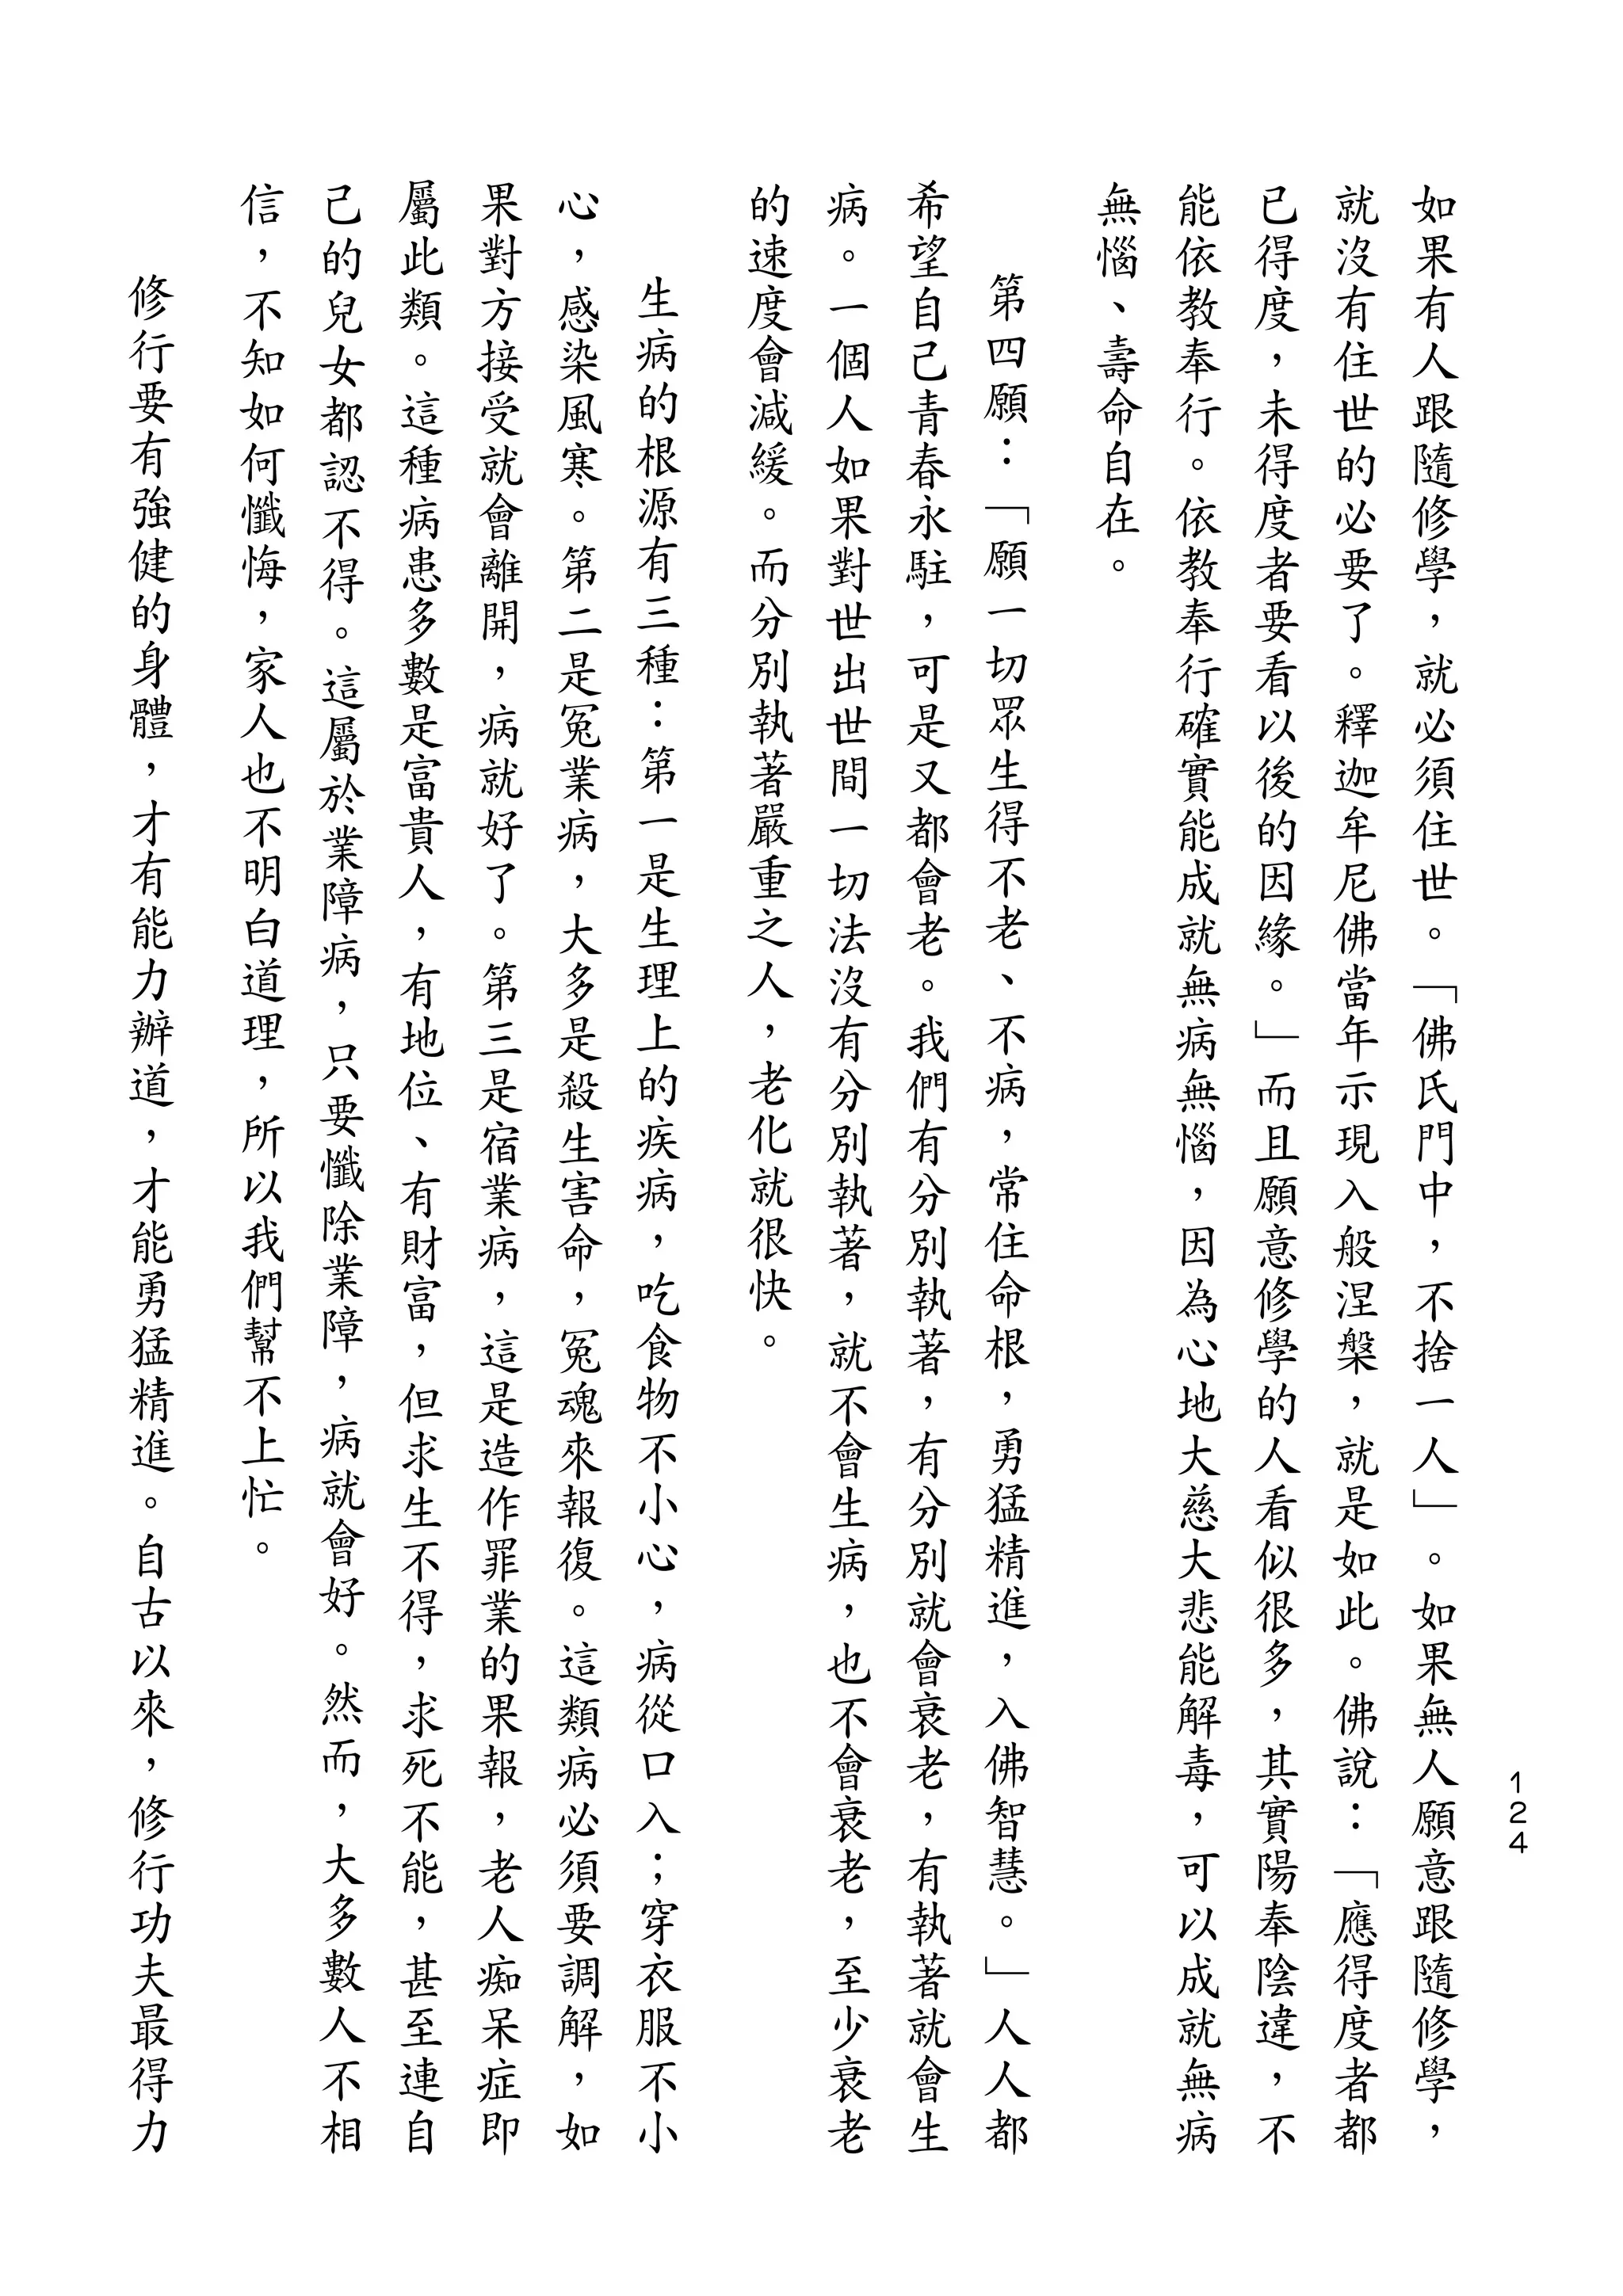 如果有人跟隨修學，就必須住世。「佛氏門中，不捨一人」。如果無人願意跟隨修學，
就沒有住世的必要了。釋迦牟尼佛當年示現入般涅槃，就是如此。佛說：「應得度者都
已得度，未得度者要看以後的因緣。」而且願意修學的人看似很多，其實陽奉陰違，不
能依教奉行。依教奉行確實能成就無病無惱，因為心地大慈大悲能解毒，可以成就無病
無惱、壽命自在。
第四願：「願一切眾生得不老、不病，常住命根，勇猛精進，入佛智慧。」人人都
希望自己青春永駐，可是又都會老。我們有分別執著，有分別就會衰老，有執著就會生
病。一個人如果對世出世間一切法沒有分別執著，就不會生病，也不會衰老，至少衰老
的速度會減緩。而分別執著嚴重之人，老化就很快。
生病的根源有三種：第一是生理上的疾病，吃食物不小心，病從口入；穿衣服不小
心，感染風寒。第二是冤業病，大多是殺生害命，冤魂來報復。這類病必須要調解，如
果對方接受就會離開，病就好了。第三是宿業病，這是造作罪業的果報，老人痴呆症即
屬此類。這種病患多數是富貴人，有地位、有財富，但求生不得，求死不能，甚至連自
己的兒女都認不得。這屬於業障病，只要懺除業障，病就會好。然而，大多數人不相
信，不知如何懺悔，家人也不明白道理，所以我們幫不上忙。
修行要有強健的身體，才有能力辦道，才能勇猛精進。自古以來，修行功夫最得力
124